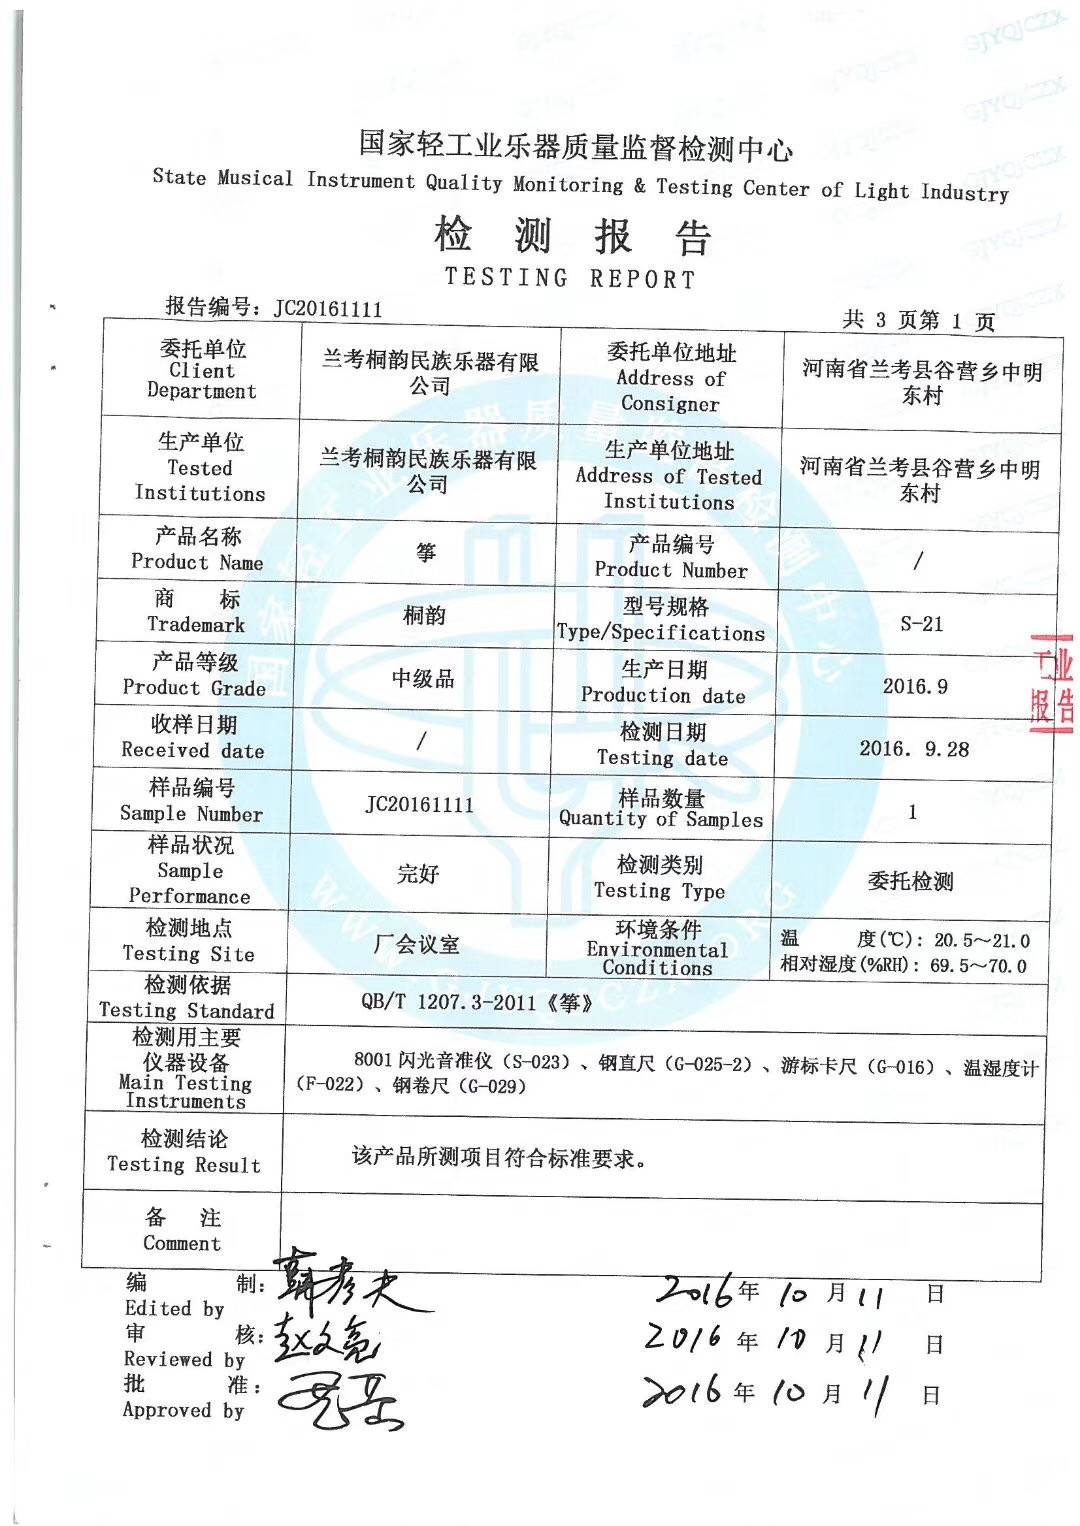 国家轻工业乐器质量监督检测中心
State Musical Instrument Quality Monitoring & Testing Center of Light Industry
检 测 报 告
TESTING REPORT
报告编号: JC20161111
共 3 页第 1 页
委托单位
Client
Department
兰考桐韵民族乐器有限
公司
委托单位地址
Address of
Consigner
河南省兰考县谷营乡中明
东村
生产单位
Tested
Institutions
兰考桐韵民族乐器有限
公司
生产单位地址
Address of Tested
Institutions
河南省兰考县谷营乡中明
东村
产品名称
Product Name
筝
产品编号
Product Number
/
商 标
Trademark
桐韵
型号规格
Type/Specifications
S-21
产品等级
Product Grade
中级品
生产日期
Production date
2016.9
收样日期
Received date
/
检测日期
Testing date
2016. 9.28
样品编号
Sample Number
JC20161111
样品数量
Quantity of Samples
1
样品状况
Sample
Performance
完好
检测类别
Testing Type
委托检测
检测地点
Testing Site
厂会议室
环境条件
Environmental
Conditions
温 度(℃): 20.5～21.0
相对湿度(%RH): 69.5～70.0
检测依据
Testing Standard
QB/T 1207.3-2011《筝》
检测用主要
仪器设备
Main Testing
Instruments
8001 闪光音准仪（S-023）、钢直尺（G-025-2）、游标卡尺（G-016）、温湿度计
（F-022）、钢卷尺（G-029）
检测结论
Testing Result
该产品所测项目符合标准要求。
备 注
Comment
编 制:
Edited by
2016年 10 月 11 日
审 核:
Reviewed by
赵文亮
2016 年 10 月 11 日
批 准:
Approved by
2016 年 10 月 11 日
工业
报告